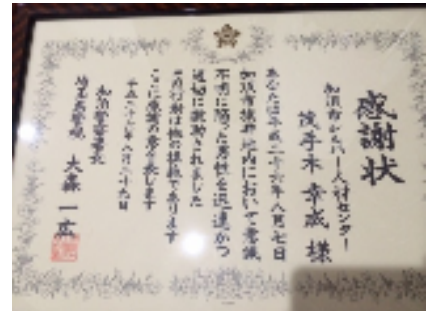 感謝状
加須市シルバー人材センター
茂手木 幸成 様
あなたは平成二十六年八月七日
加須市 地内において意識
不明に陥った男性を迅速かつ
適切に救助されました
この行為は他の模範であります
ここに感謝の意を表します
平成二十六年八月二十九日
加須警察署長
埼玉県警視 大森 一